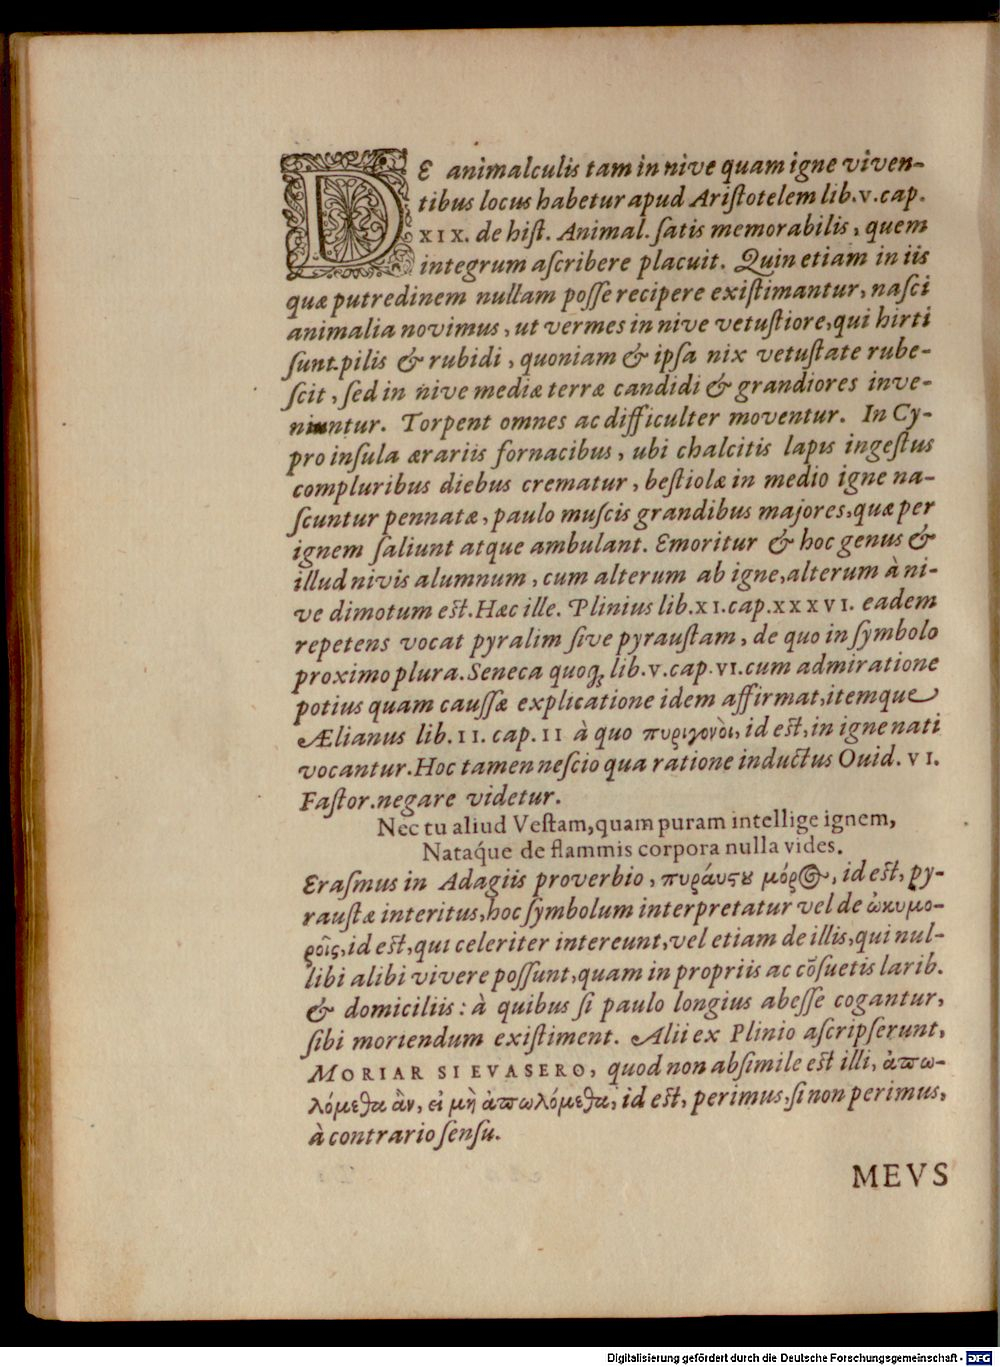 DE animalculis tam in nive quam igne viven-
tibus locus habetur apud Aristotelem lib. v. cap.
XIX. de hist. Animal. satis memorabilis, quem
integrum ascribere placuit. Quin etiam in iis
quæ putredinem nullam posse recipere existimantur, nasci
animalia novimus, ut vermes in nive vetustiore, qui hirti
sunt pilis & rubidi, quoniam & ipsa nix vetustate rube-
scit, sed in nive mediæ terræ candidi & grandiores inve-
niuntur. Torpent omnes ac difficulter moventur. In Cy-
pro insula ærariis fornacibus, ubi chalcitis lapis ingestus
compluribus diebus crematur, bestiolæ in medio igne na-
scuntur pennatæ, paulo muscis grandibus majores, quæ per
ignem saliunt atque ambulant. Emoritur & hoc genus &
illud nivis alumnum, cum alterum ab igne, alterum à ni-
ve dimotum est. Hæc ille. Plinius lib. XI. cap. XXXVI. eadem
repetens vocat pyralim sive pyraustam, de quo in symbolo
proximo plura. Seneca quoq; lib. v. cap. VI. cum admiratione
potius quam caussæ explicatione idem affirmat, itemque
Ælianus lib. II. cap. II à quo πυριγονοὶ, id est, in igne nati
vocantur. Hoc tamen nescio qua ratione inductus Ovid. VI.
Fastor. negare videtur.
Nec tu aliud Vestam, quam puram intellige ignem,
Natáque de flammis corpora nulla vides.
Erasmus in Adagiis proverbio, πυράυςου μόρος, id est, py-
raustæ interitus, hoc symbolum interpretatur vel de ὠκυμο-
ροῖς, id est, qui celeriter intereunt, vel etiam de illis, qui nul-
libi alibi vivere possunt, quam in propriis ac cõsuetis larib.
& domiciliis: à quibus si paulo longius abesse cogantur,
sibi moriendum existiment. Alii ex Plinio ascripserunt,
MORIAR SI EVASERO, quod non absimile est illi, ἀπω-
λόμεθα ἂν, εἰ μὴ ἀπωλόμεθα, id est, perimus, si non perimus,
à contrario sensu.
MEVS
Digitalisierung gefördert durch die Deutsche Forschungsgemeinschaft - DFG